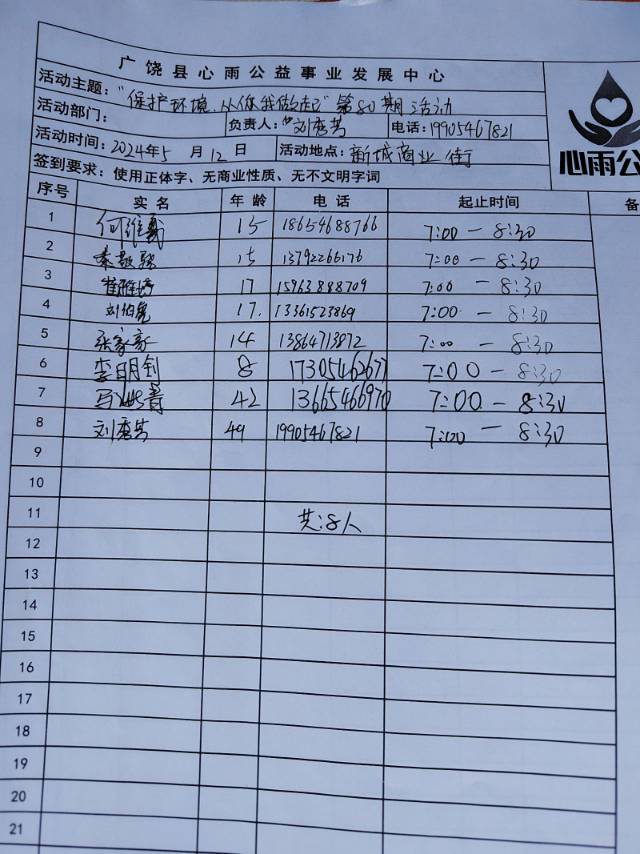 广饶县心雨公益事业发展中心
活动主题：“保护环境，从你我做起”第80期活动
活动部门： 负责人：刘彦芳 电话：19905467821
活动时间：2024年5月12日 活动地点：新城商业街
签到要求：使用正体字、无商业性质、无不文明字词
心雨公
序号 实名 年龄 电话 起止时间 备
1 15 18654688766 7:00 — 8:30
2 15 13792266176 7:00 — 8:30
3 17 15963888709 7:00 — 8:30
4 17. 13361523869 7:00 — 8:30
5 张家豪 14 13864713872 7:00 — 8:30
6 李明钊 8 17305462677 7:00 — 8:30
7 42 13665466970 7:00 — 8:30
8 刘彦芳 49 19905467821 7:00 — 8:30
9
10
11 共:8人
12
13
14
15
16
17
18
19
20
21